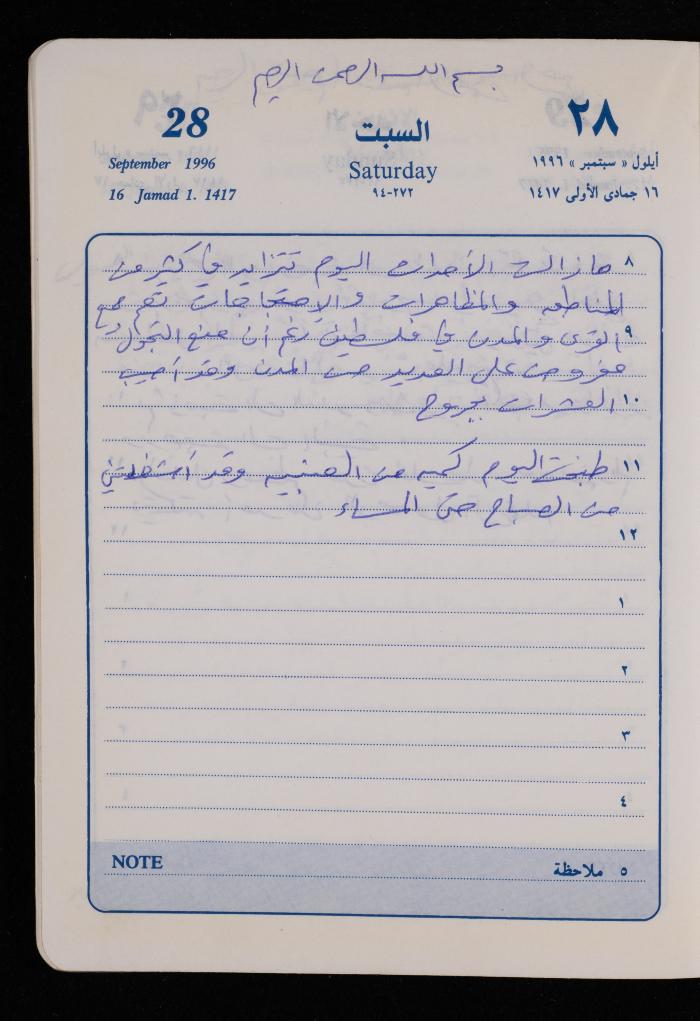 بسم الله الرحمن الرحيم
28 السبت ٢٨
September 1996 Saturday أيلول « سبتمبر » ١٩٩٦
16 Jamad 1. 1417 ٢٧٢-٩٤ ١٦ جمادى الأولى ١٤١٧
٨ ما زالت الأحداث اليوم تتزايد في كثير من
المناطق والمظاهرات والإحتجاجات تعم جميع
٩ القرى والمدن في فلسطين رغم أن منع التجول
مفروض على العديد من المدن وقد أصيب
١٠ العشرات بجروح
١١ طبخت اليوم كميه من العنبيه وقد أشغلتني
من الصباح حتى المساء
١٢
١
٢
٣
٤
NOTE ٥ ملاحظة